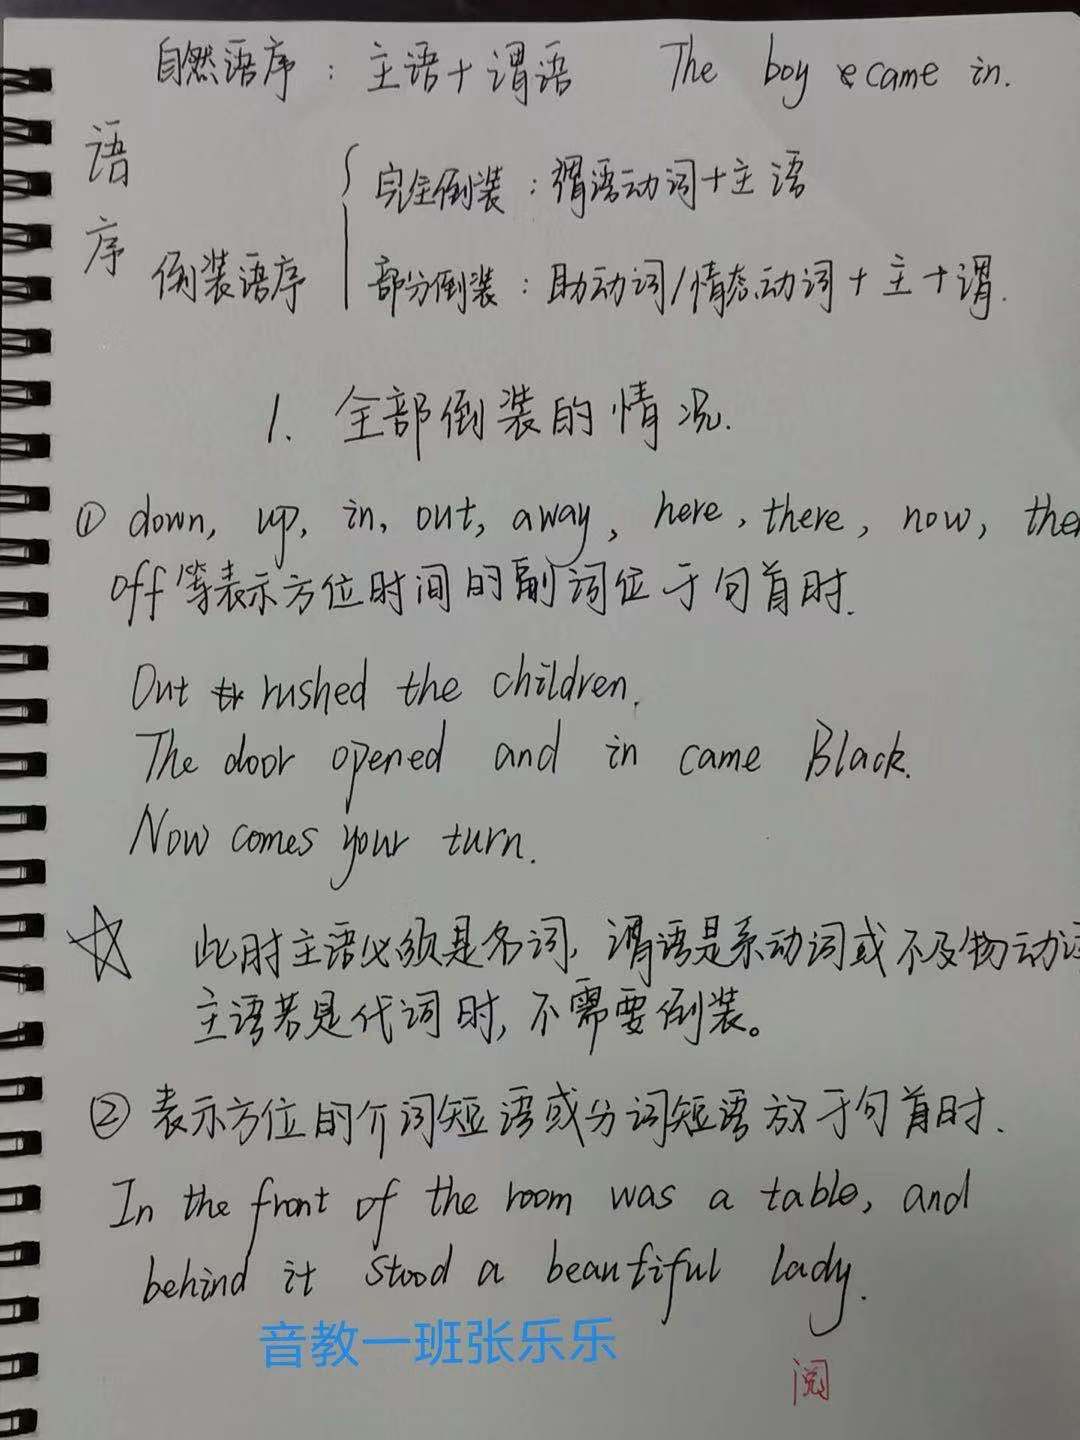 自然语序：主语+谓语 The boy came in.
语序
完全倒装：谓语动词+主语
倒装语序
部分倒装：助动词/情态动词+主+谓.
1. 全部倒装的情况.
① down, up, in, out, away, here, there, now, then
off等表示方位时间的副词位于句首时.
Out rushed the children.
The door opened and in came Black.
Now comes your turn.
☆ 此时主语必须是名词, 谓语是系动词或不及物动词
主语若是代词时, 不需要倒装。
② 表示方位的介词短语或分词短语放于句首时.
In the front of the room was a table, and
behind it stood a beautiful lady.
音教一班张乐乐
阅